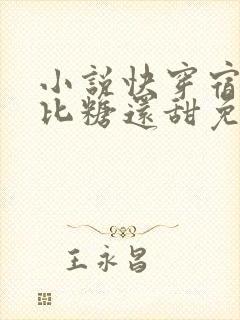 小說快穿宿
比糖還甜免
王永昌